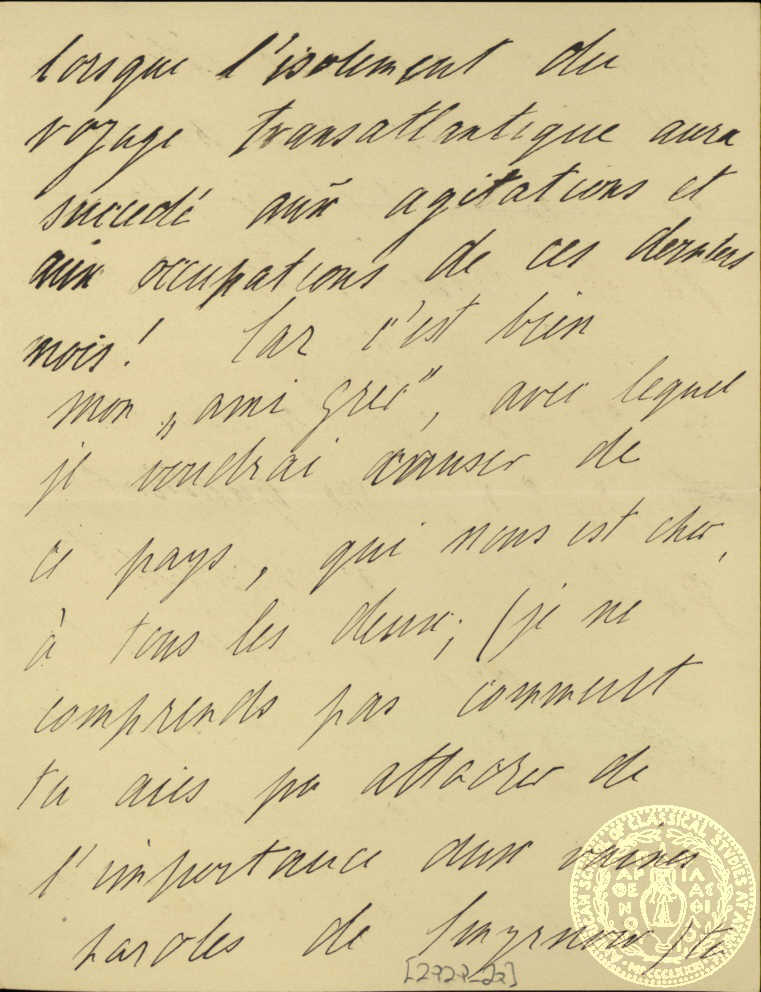 lorsque l'isolement du
voyage transatlantique aura
succedé aux agitations et
aux occupations de ces derniers
mois! Car c'est bien
mon „ami grec", avec lequel
je voudrai causer de
ce pays, qui nous est cher,
à tous les deux; (je ne
comprends pas comment
tu aies pu attacher de
l'importance aux vaines
paroles de